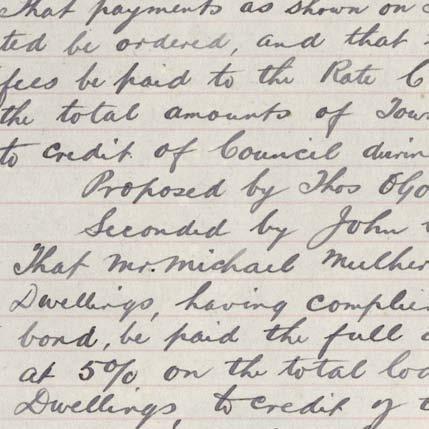 That payments as shown on
ted be ordered, and that
fees be paid to the Rate C
the total amounts of Tow
to credit of Council durin
Proposed by Thos OGo
Seconded by John
That Mr. Michael Mulher
Dwellings, having complie
bond, be paid the full
at 5% on the total loa
Dwellings, to credit of t